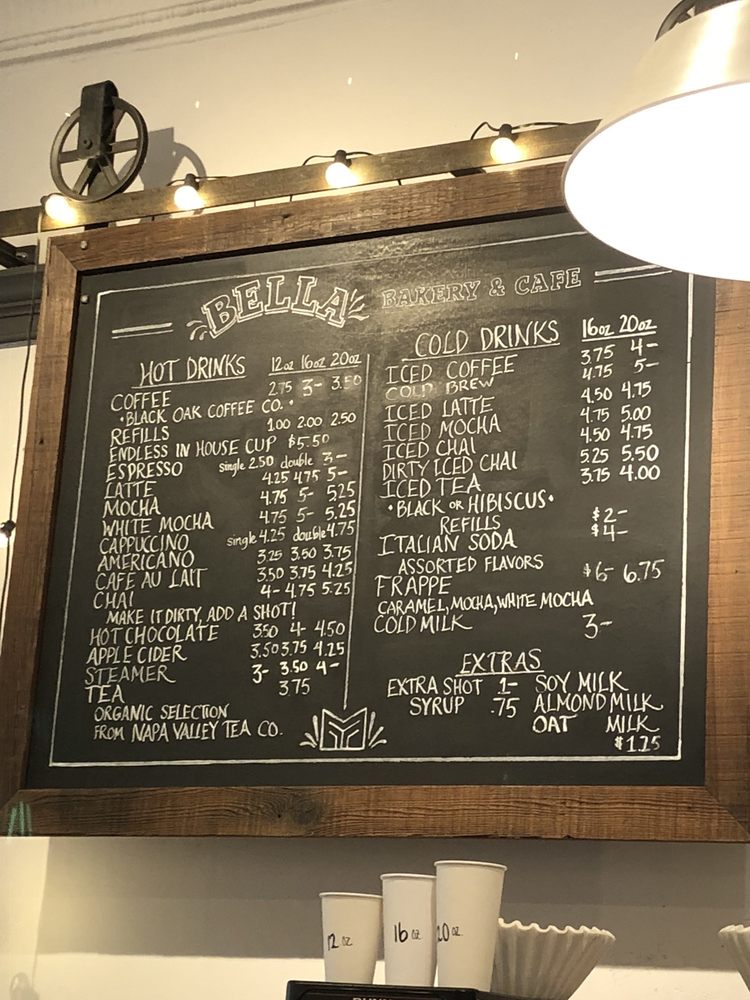 BELLA BAKERY & CAFE
HOT DRINKS 12oz 16oz 20oz
COFFEE 2.75 3- 3.50
•BLACK OAK COFFEE CO.•
REFILLS 1.00 2.00 2.50
ENDLESS IN HOUSE CUP $5.50
ESPRESSO single 2.50 double 3-
LATTE 4.25 4.75 5-
MOCHA 4.75 5- 5.25
WHITE MOCHA 4.75 5- 5.25
CAPPUCCINO single 4.25 double 4.75
AMERICANO 3.25 3.50 3.75
CAFE AU LAIT 3.50 3.75 4.25
CHAI 4- 4.75 5.25
MAKE IT DIRTY, ADD A SHOT!
HOT CHOCOLATE 3.50 4- 4.50
APPLE CIDER 3.50 3.75 4.25
STEAMER 3- 3.50 4-
TEA 3.75
ORGANIC SELECTION
FROM NAPA VALLEY TEA CO.
COLD DRINKS 16oz 20oz
ICED COFFEE 3.75 4-
COLD BREW 4.75 5-
ICED LATTE 4.50 4.75
ICED MOCHA 4.75 5.00
ICED CHAI 4.50 4.75
DIRTY ICED CHAI 5.25 5.50
ICED TEA 3.75 4.00
•BLACK OR HIBISCUS•
REFILLS $2-
ITALIAN SODA $4-
ASSORTED FLAVORS
FRAPPE $6- 6.75
CARAMEL, MOCHA, WHITE MOCHA
COLD MILK 3-
EXTRAS
EXTRA SHOT 1- SOY MILK
SYRUP .75 ALMOND MILK
OAT MILK
$1.25
12 oz 16 oz 20 oz